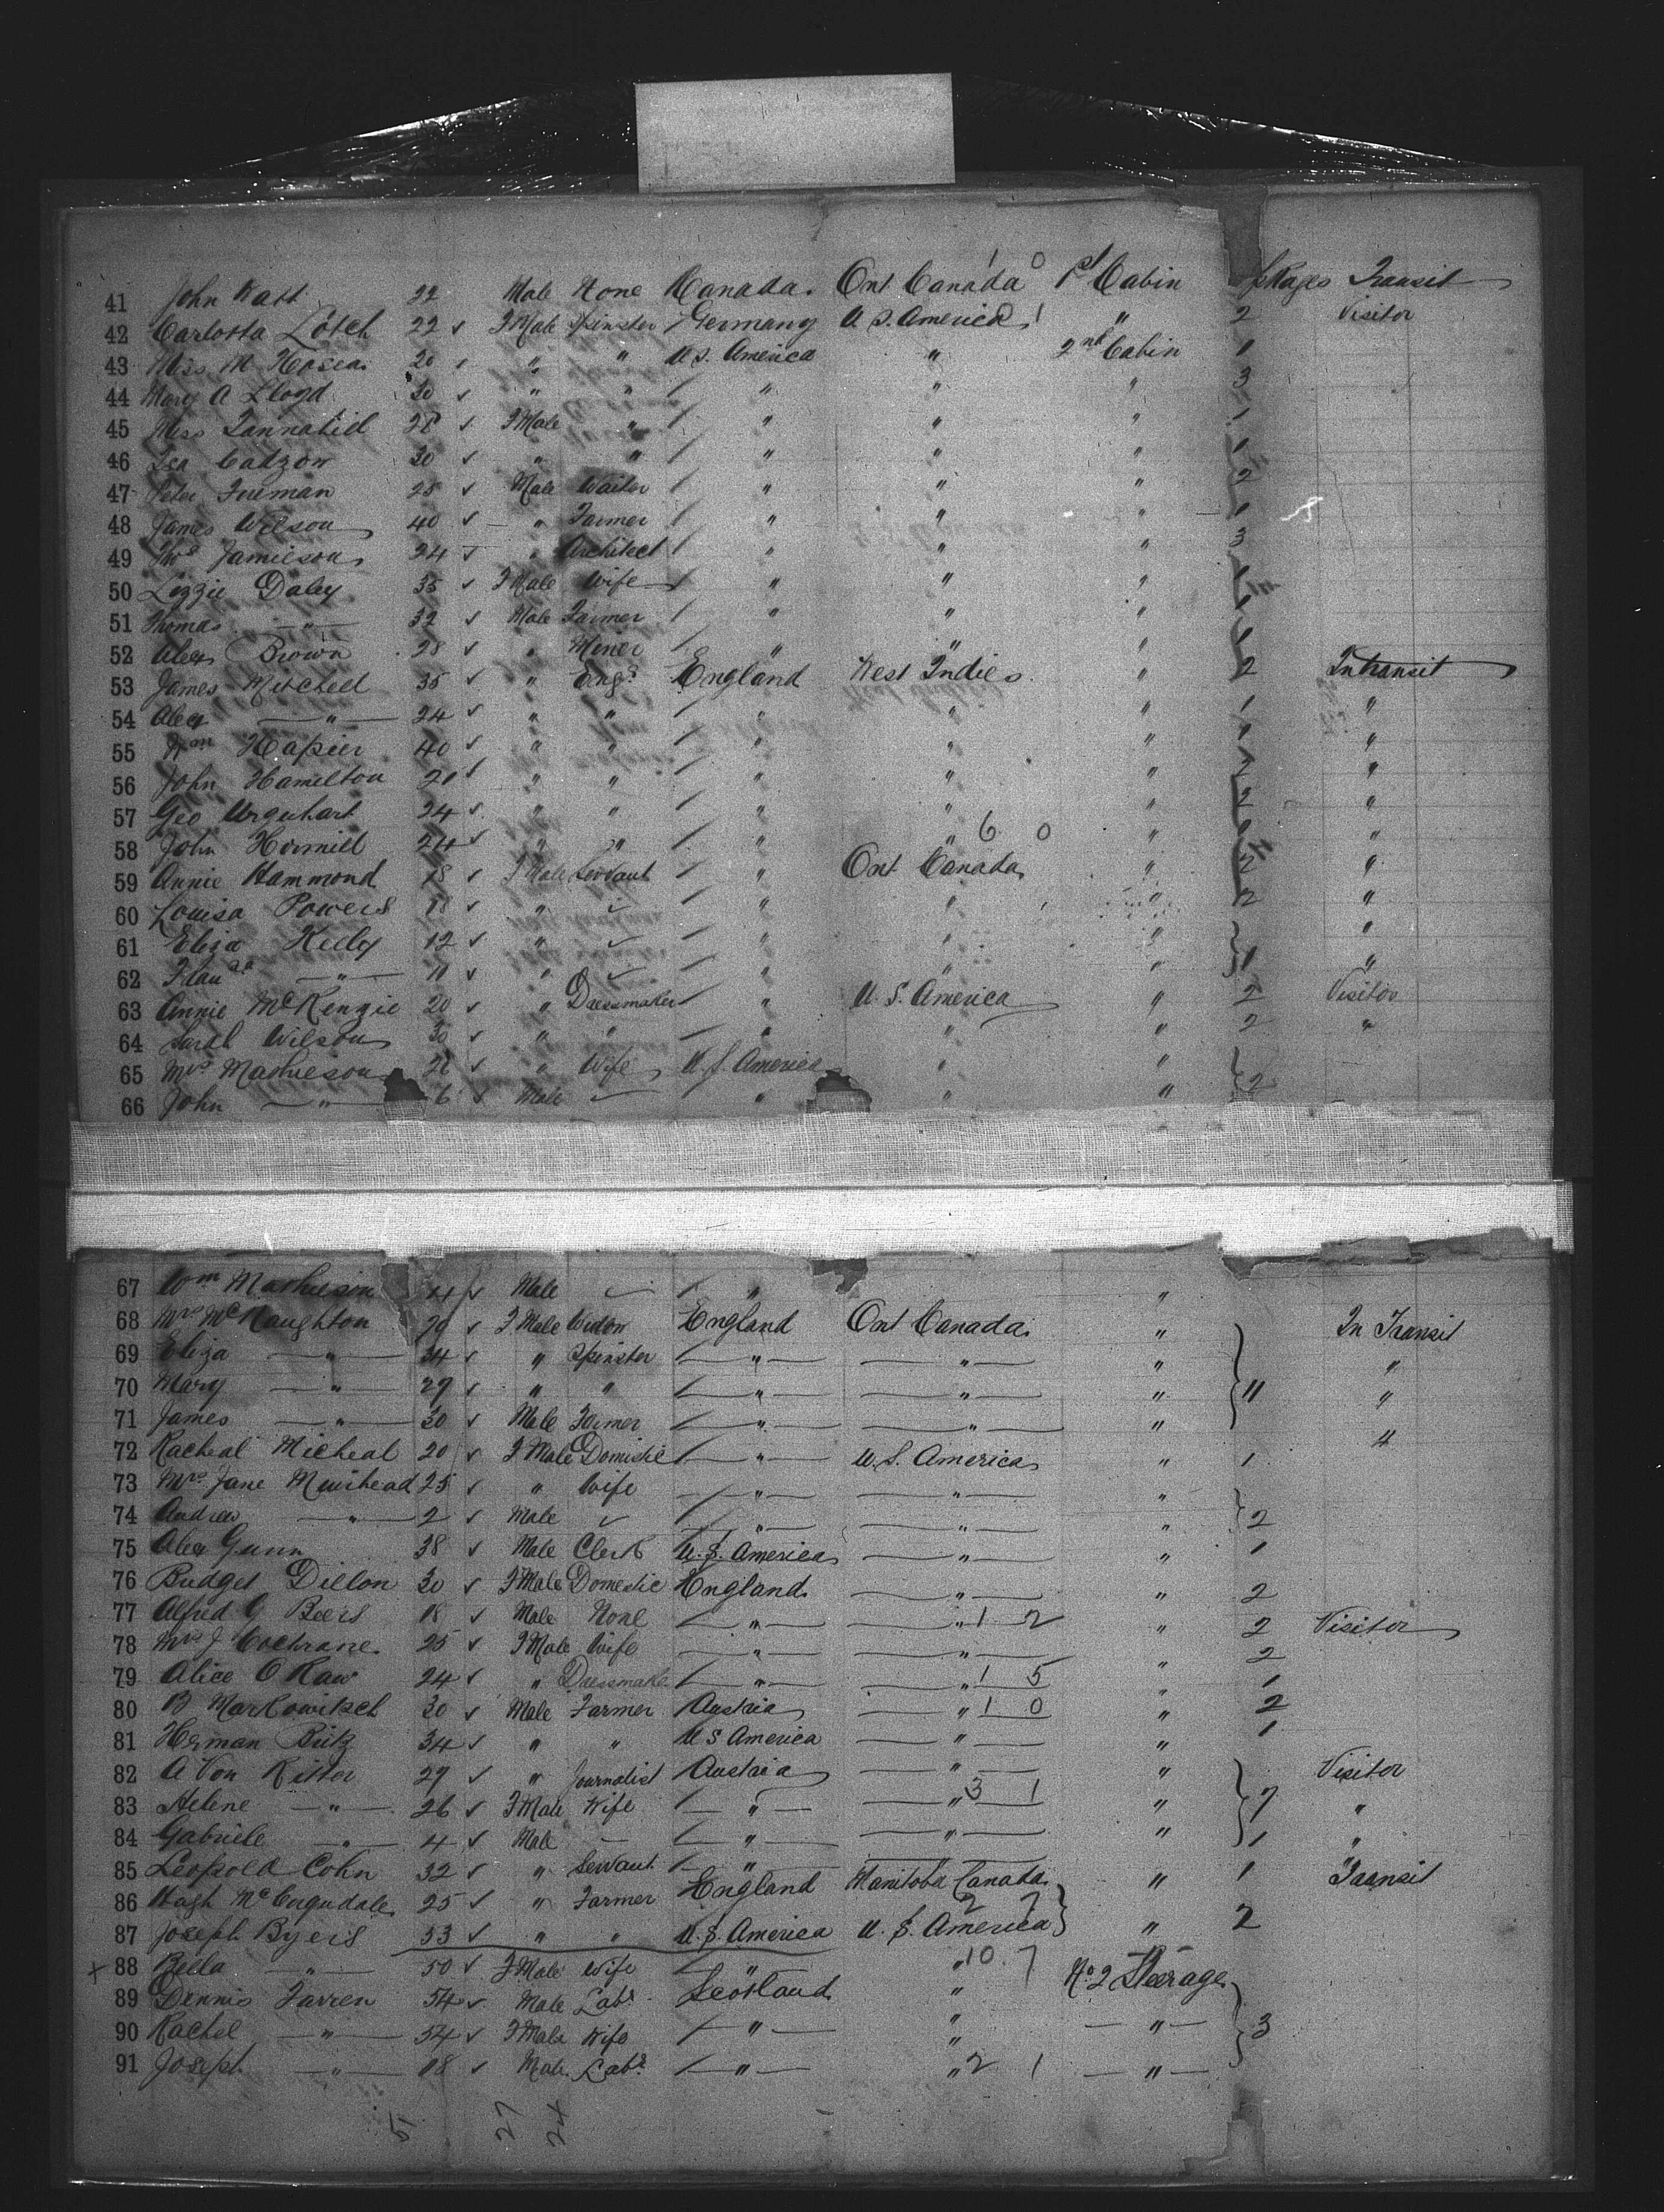 41 John Watt 22 Male None Canada. Ont Canada 1 0 1st Cabin pkages Transit
42 Carlotta Lötch 22 ✓ FMale Spinster / Germany U S. America 1 " 2 Visitor
43 Miss M Hosea 20 " " U S. America " 2nd Cabin 1
44 Mary A Lloyd 30 ✓ " " / " " " 3
45 Miss Tannahil 28 ✓ FMale " / " " " 1
46 Cadzow 30 ✓ " " / " " " 1
47 Peter Freeman 25 ✓ Male Waiter / " " " 2
48 James Wilson 40 ✓ " Farmer / " " " 1
49 Jamieson 24 ✓ " Architect / " " " 3
50 Lizzie Daley 35 ✓ FMale Wife / " " " 1
51 Thomas " 32 ✓ Male Farmer / " " " 1
52 Alex Brown 28 ✓ " Miner / " " " 1
53 James Mitchell 35 ✓ " Engr England West Indies " 2 In transit
54 Alex " 24 ✓ " " / " " " 1 "
55 Wm Napier 40 ✓ " " / " " " 1 "
56 John Hamilton 21 ✓ " " / " " " 2 "
57 Geo Urquhart 24 ✓ " " / " " " 2 "
58 John 24 ✓ " " / " " 6 0 " "
59 Annie Hammond 18 ✓ FMale Servant / " Ont Canada " 2 "
60 Louisa Powers 18 ✓ " ✓ / " " " 2 "
61 Eliza Keely 12 ✓ " ✓ / " " " "
62 " 11 ✓ " ✓ / " " " 1 "
63 Annie McKenzie 20 ✓ " Dressmaker / " U. S. America " 2 Visitor
64 Sarah Wilson 30 ✓ " " / " " " 2 "
65 Mrs Mathieson ✓ " Wife U. S. America " "
66 John " 6 ✓ Male ✓ " " " 2
67 Wm Mathieson 4 ✓ Male ✓ / " "
68 Mrs McNaughton ✓ FMale Widow England Ont Canada " In Transit
69 Eliza " 34 ✓ " Spinster / " " " "
70 Mary " 29 ✓ " " / " " " 11 "
71 James " 30 ✓ Male Farmer / " " " "
72 Racheal Micheal 20 ✓ FMale Domistic / " U. S. America " 1
73 Mrs Jane Muirhead 25 ✓ " Wife / " " "
74 Andrew " 2 ✓ Male ✓ / " " " 2
75 Alex Gunn 38 ✓ Male Clerk U. S. America " " 1
76 Bridget Dillon 30 ✓ FMale Domestic England " " 2
77 Alfred G Beers 18 ✓ Male None / " " 1 2 " 2 Visitor
78 Mrs J Cochrane 25 ✓ FMale Wife / " " " 2
79 Alice O Kaw 24 ✓ " Dressmaker / " " 1 5 " 1
80 B Markowitsch 30 ✓ Male Farmer Austria " 1 0 " 2
81 Herman Britz 34 ✓ " " U S America " " 1
82 A Von Ritter 29 ✓ " Journalist Austria " " Visitor
83 Helene " 26 ✓ FMale Wife / " " 3 1 " 7 "
84 Gabriele " 4 ✓ Male – / " " " "
85 Leopold Cohn 32 ✓ " Servant / " " 1 "
86 Hugh McCorquodale 25 ✓ " Farmer England Manitoba Canada 2 7 " 1 Transit
87 Joseph Byers 53 ✓ " " U. S. America U. S. America " 2
88 Bella " 50 ✓ FMale Wife / " " 10 7
89 Dennis Farren 54 ✓ Male Labr Scotland " No 2 Steerage
90 Rachel " 54 ✓ FMale Wife / " " " 3
91 Joseph " 18 ✓ Male Labr / " " 2 1 "
51 27 24